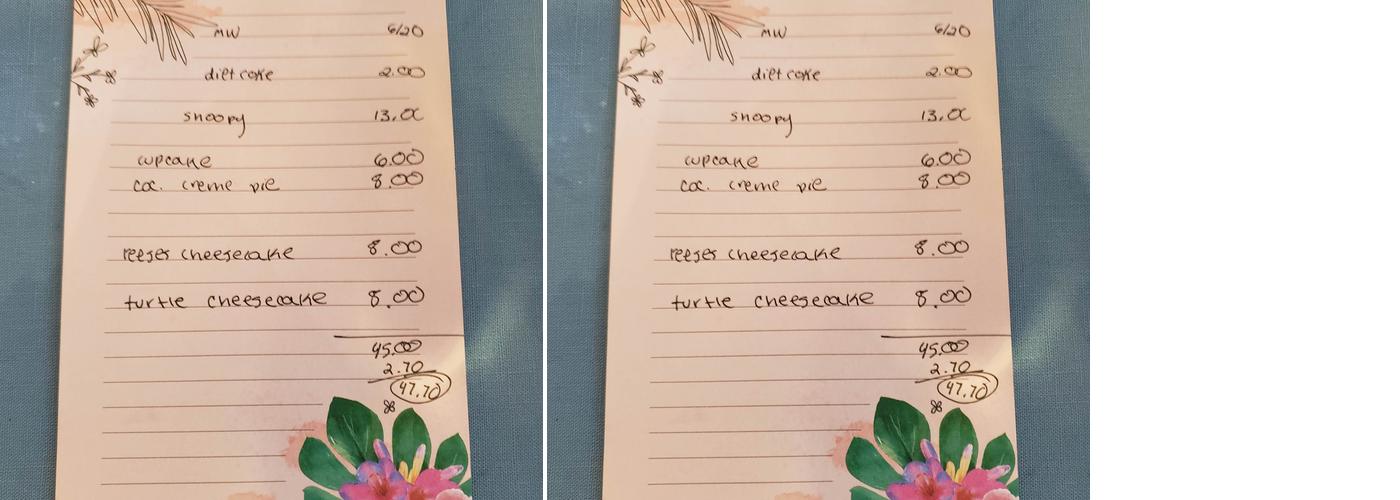 MW 6/20
diet coke 2.00
snoopy 13.00
cupcake 6.00
coc. creme pie 8.00
reeses cheesecake 8.00
turtle cheesecake 8.00
45.00
2.70
47.70
MW 6/20
diet coke 2.00
snoopy 13.00
cupcake 6.00
coc. creme pie 8.00
reeses cheesecake 8.00
turtle cheesecake 8.00
45.00
2.70
47.70